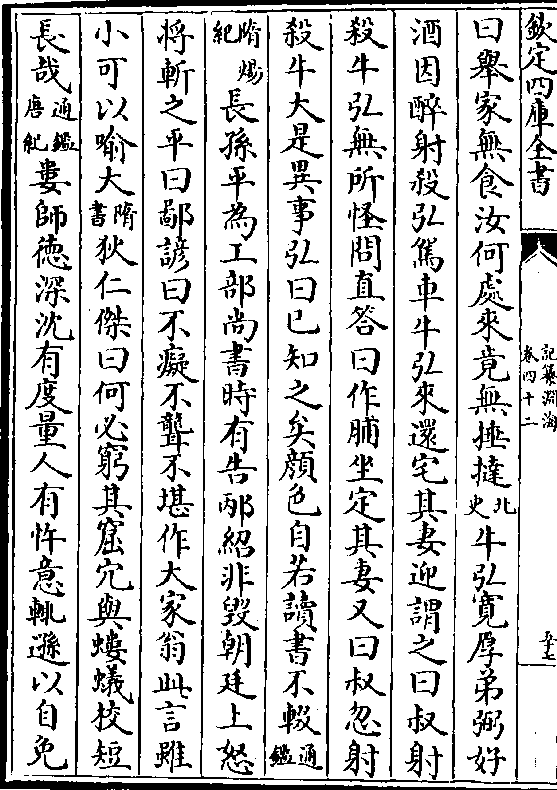 欽定四庫全書
記纂淵海
卷四十二
曰舉家無食汝何處來竟無捶撻北史牛弘寛厚弟弼好
酒因醉射殺弘駕車牛弘來還宅其妻迎謂之曰叔射
殺牛弘無所怪問直答曰作脯坐定其妻又曰叔忽射
殺牛大是異事弘曰已知之矣顔色自若讀書不輟通鑑
隋煬紀長孫平為工部尚書時有告邴紹非毀朝廷上怒
將斬之平曰鄙諺曰不癡不聾不堪作大家翁此言雖
小可以喻大隋書狄仁傑曰何必窮其窟穴與螻蟻校短
長哉通鑑唐紀婁師徳深沈有度量人有忤意輒遜以自免